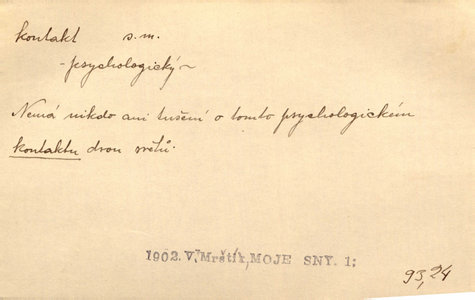 kontakt s. m.
- psychologický ~
Nemá nikdo ani tušení o tomto psychologickém
kontaktu dvou světů.
1902. V. Mrštík, MOJE SNY. 1:
93,24